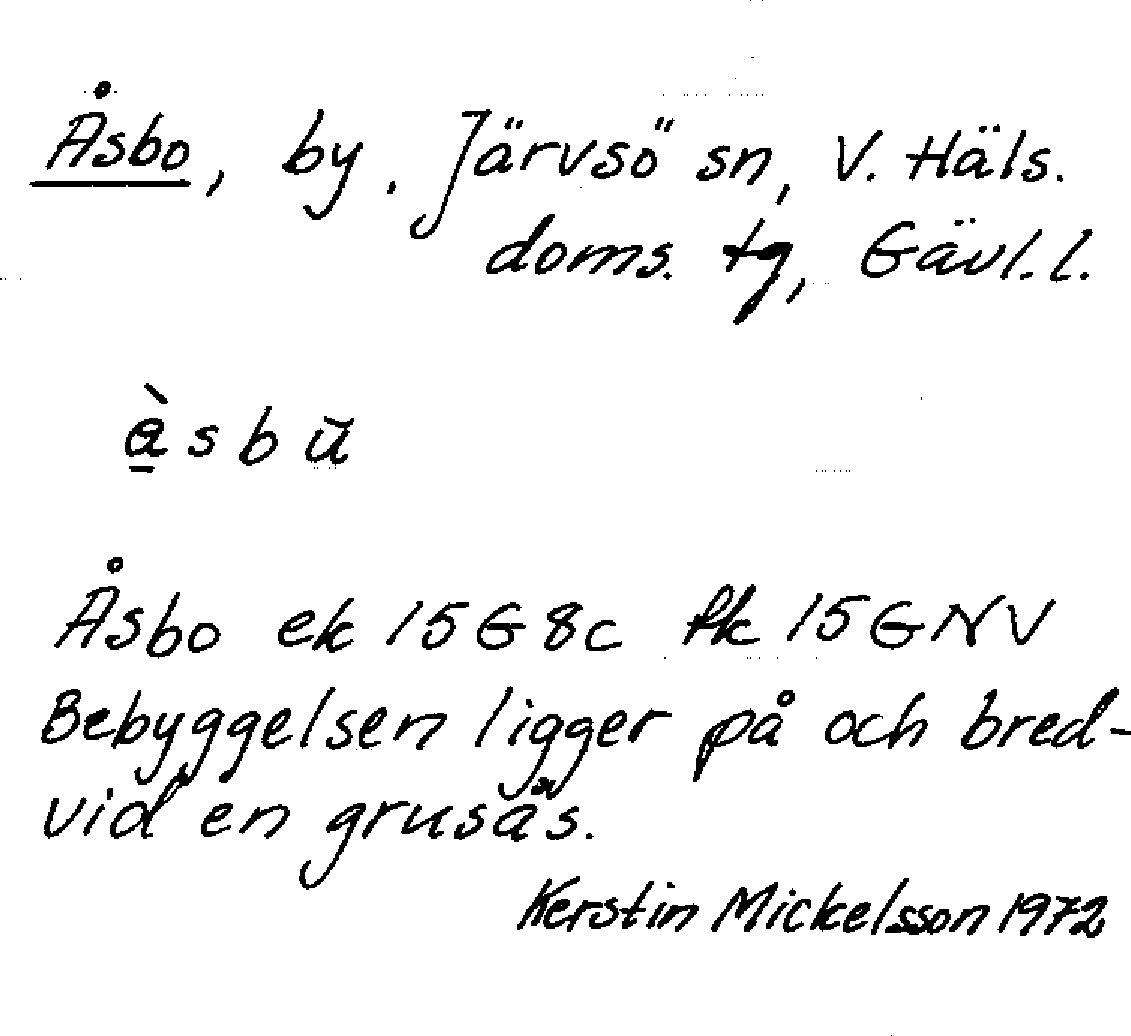 Åsbo, by. Järvsö sn, V. Häls.
doms. tg, Gävl. l.
à̱sbŭ
Åsbo ek 15G8c fk 15GNV
Bebyggelsen ligger på och bred-
vid en grusås.
Kerstin Mickelsson 1972